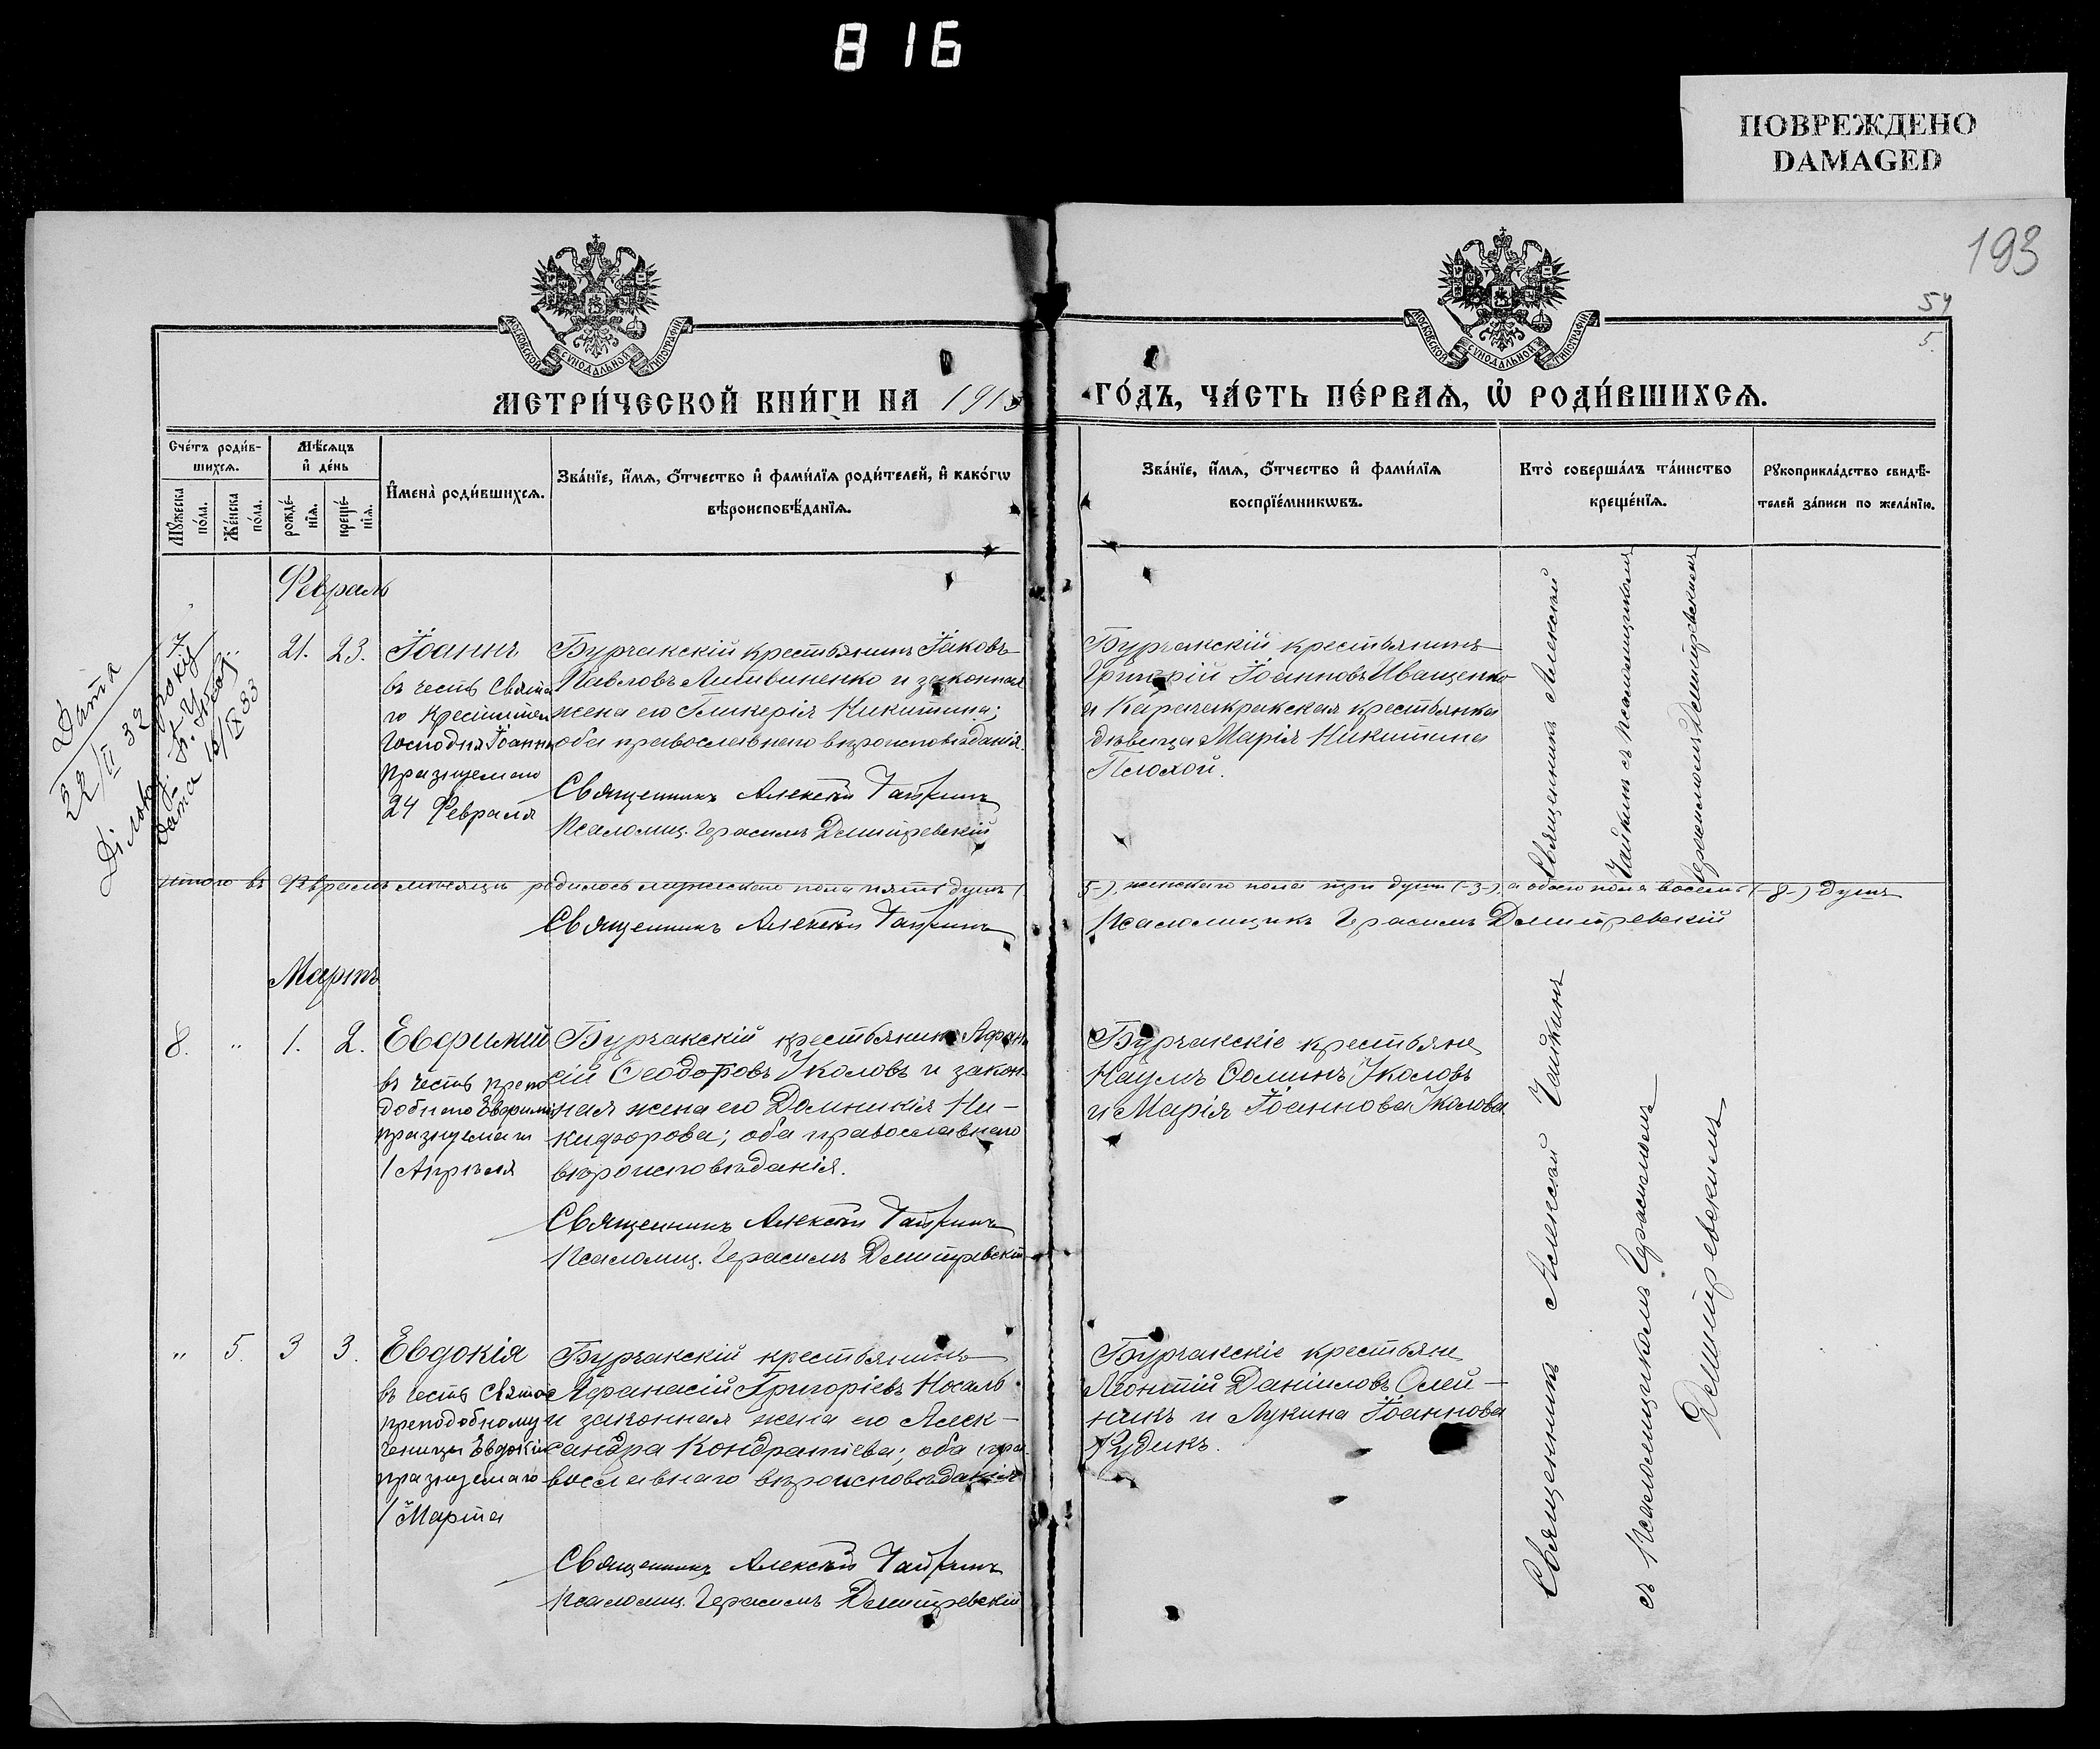 816
ПОВРЕЖДЕНО
DAMAGED
193
54
5.
МОСКОВСКОЙ СѴНОДАЛЬНОЙ ТИПОГРАФІИ
МОСКОВСКОЙ СѴНОДАЛЬНОЙ ТИПОГРАФІИ
МЕТРИ́ЧЕСКОЙ КНИ́ГИ НА 1913
ГО́ДЪ, ЧА́СТЬ ПЕ́РВАѦ, Ѡ҆ РОДИ́ВШИХСѦ.
Сче́тъ роди́в-
шихсѧ.
Мꙋ́жеска
по́ла.
Же́нска
по́ла.
Мѣ́сѧцъ
и҆ де́нь
рожде́-
нїѧ.
креще́-
нїѧ.
И҆мена̀ роди́вшихсѧ.
Зва́нїе, и҆́мѧ, ѻ҆́тчество и҆ фами́лїѧ роди́телей, и҆ како́гѡ
вѣроисповѣ́данїѧ.
Зва́нїе, и҆́мѧ, ѻ҆́тчество и҆ фами́лїѧ
воспрїе́мникѡвъ.
Кто̀ соверша́лъ та́инство
креще́нїѧ.
Рꙋкоприкла́дство свидѣ́-
телей за́писи по жела́нїю.
Февраль
7
21. 23.
Іоаннъ
въ честь Свята-
го Крестителя
Господня Іоанна
празднуемаго
24 Февраля
Бурчакскій крестьянинъ Іаковъ
Павловъ Литвиненко и законная
жена его Гликерія Никитина;
оба православнаго вѣроисповѣданія.
Священникъ Алексѣй Чайкинъ
Псаломщ. Герасимъ Димитревскій
Бурчакскій крестьянинъ
Григорій Іоанновъ Иващенко
и Карачекракская крестьянка
дѣвица Марія Никитина
Плохой.
Священникъ Алексѣй
Чайкинъ съ псаломщикомъ
Герасимомъ Димитревскимъ
Дата
22/II 33
Дата 16/IX 33
Итого въ Февралѣ мѣсяцѣ родилось мужескаго пола пять душъ (5-), женскаго пола три души (-3-), а обоего пола восемь (-8-) душъ
Священникъ Алексѣй Чайкинъ
Псаломщикъ Герасимъ Димитревскій
Мартъ
8. " 1. 2.
Евфимій
въ честь препо-
добнаго Евфимія
празднуемаго
1 Апрѣля
Бурчакскій крестьянинъ Афана-
сій Ѳеодоровъ Уколовъ и закон-
ная жена его Домникія Ни-
кифорова; оба православнаго
вѣроисповѣданія.
Священникъ Алексѣй Чайкинъ
Псаломщ. Герасимъ Димитревскій
Бурчакскіе крестьяне
Наумъ Ѳоминъ Уколовъ
и Марія Іоаннова Уколова
" 5. 3 3.
Евдокія
въ честь Святой
преподобному-
ченицы Евдокіи
празднуемаго
1 Марта
Бурчакскій крестьянинъ
Афанасій Григоріевъ Носаль
и законная жена его Алек-
сандра Кондратіева; оба пра-
вославнаго вѣроисповѣданія
Священникъ Алексѣй Чайкинъ
Псаломщ. Герасимъ Димитревскій
Бурчакскіе крестьяне
Леонтій Даніиловъ Олей-
никъ и Лукина Іоаннова
Рудикъ.
Священникъ Алексѣй Чайкинъ
съ Псаломщикомъ Герасимомъ
Димитревскимъ